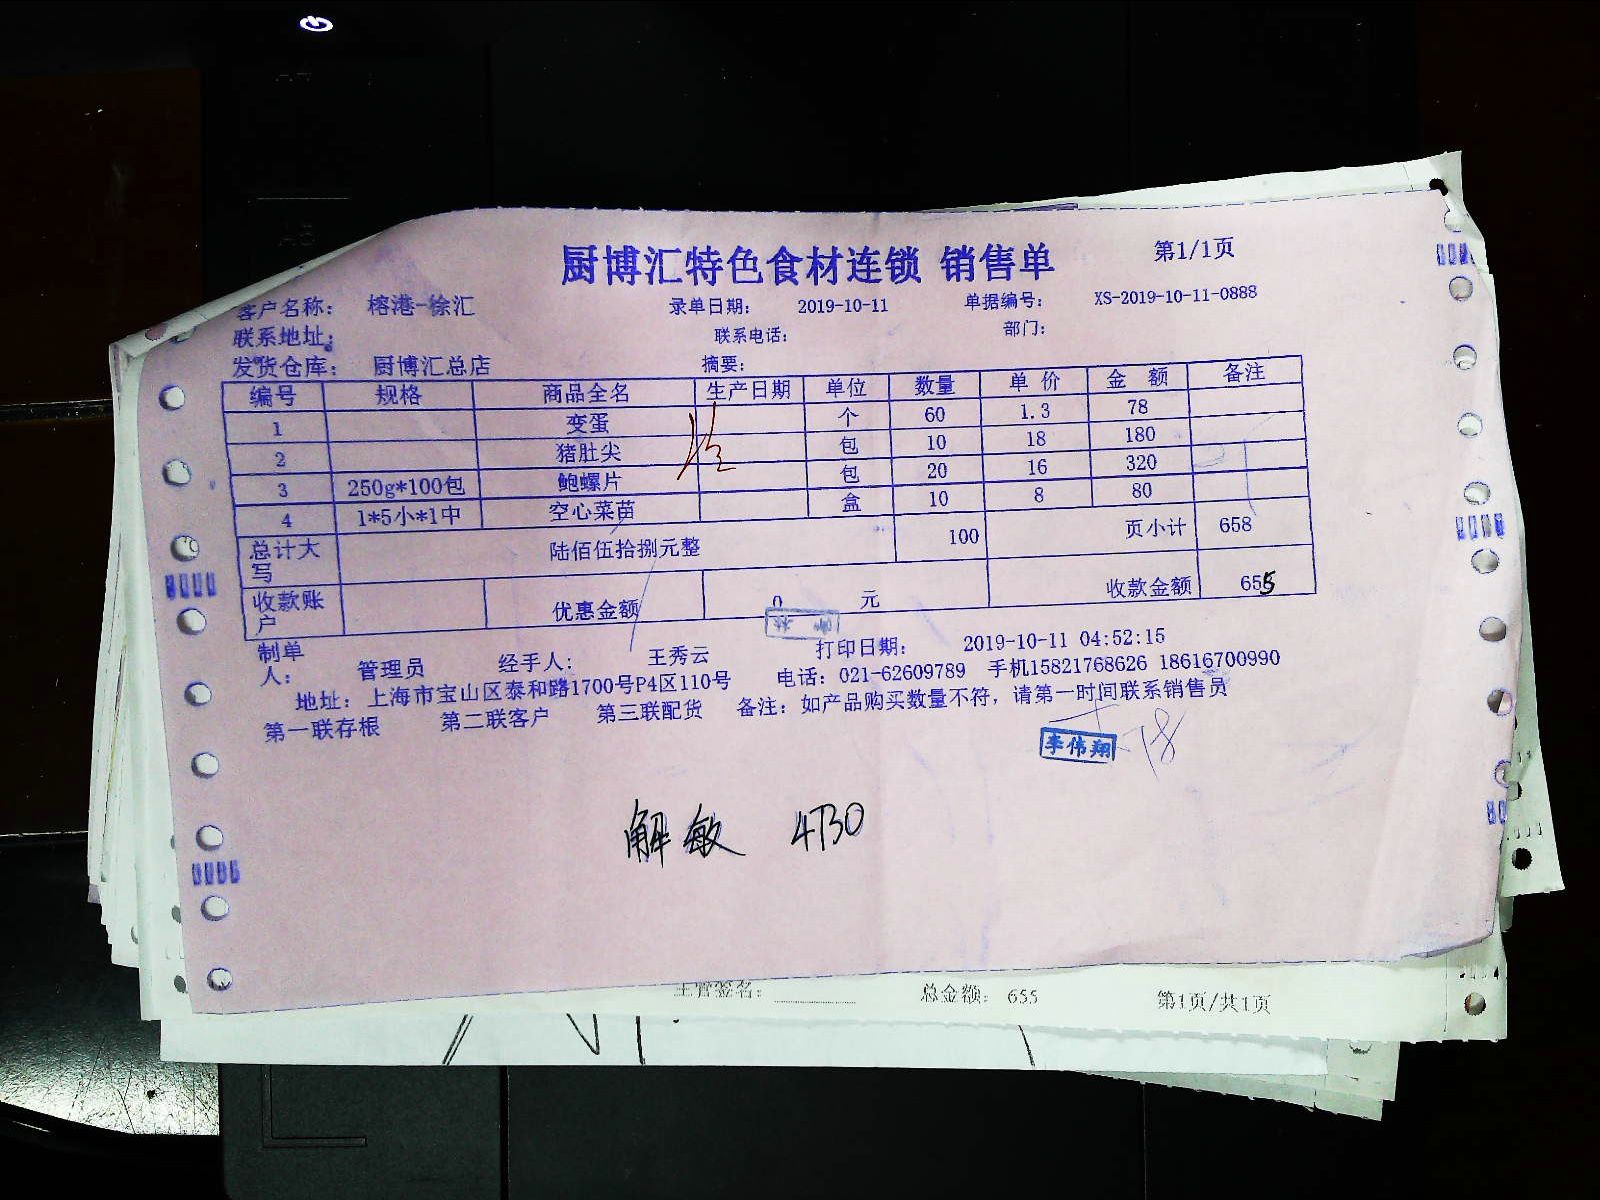 厨博汇特色食材连锁 销售单 第1/1页
客户名称: 榕港-徐汇 录单日期: 2019-10-11 单据编号: XS-2019-10-11-0888
联系地址: 联系电话: 部门:
发货仓库: 厨博汇总店 摘要:
编号 规格 商品全名 生产日期 单位 数量 单 价 金 额 备注
1 变蛋 个 60 1.3 78
2 猪肚尖 包 10 18 180
3 250g*100包 鲍螺片 包 20 16 320
4 1*5小*1中 空心菜苗 盒 10 8 80
总计大写 陆佰伍拾捌元整 100 页小计 658
收款账户 优惠金额 0 元 收款金额 655
制单人: 管理员 经手人: 王秀云 打印日期: 2019-10-11 04:52:15
地址: 上海市宝山区泰和路1700号P4区110号 电话: 021-62609789 手机15821768626 18616700990
第一联存根 第二联客户 第三联配货 备注: 如产品购买数量不符, 请第一时间联系销售员
李伟翔 78
解敏 4730
主管签名: 总金额: 655 第1页/共1页